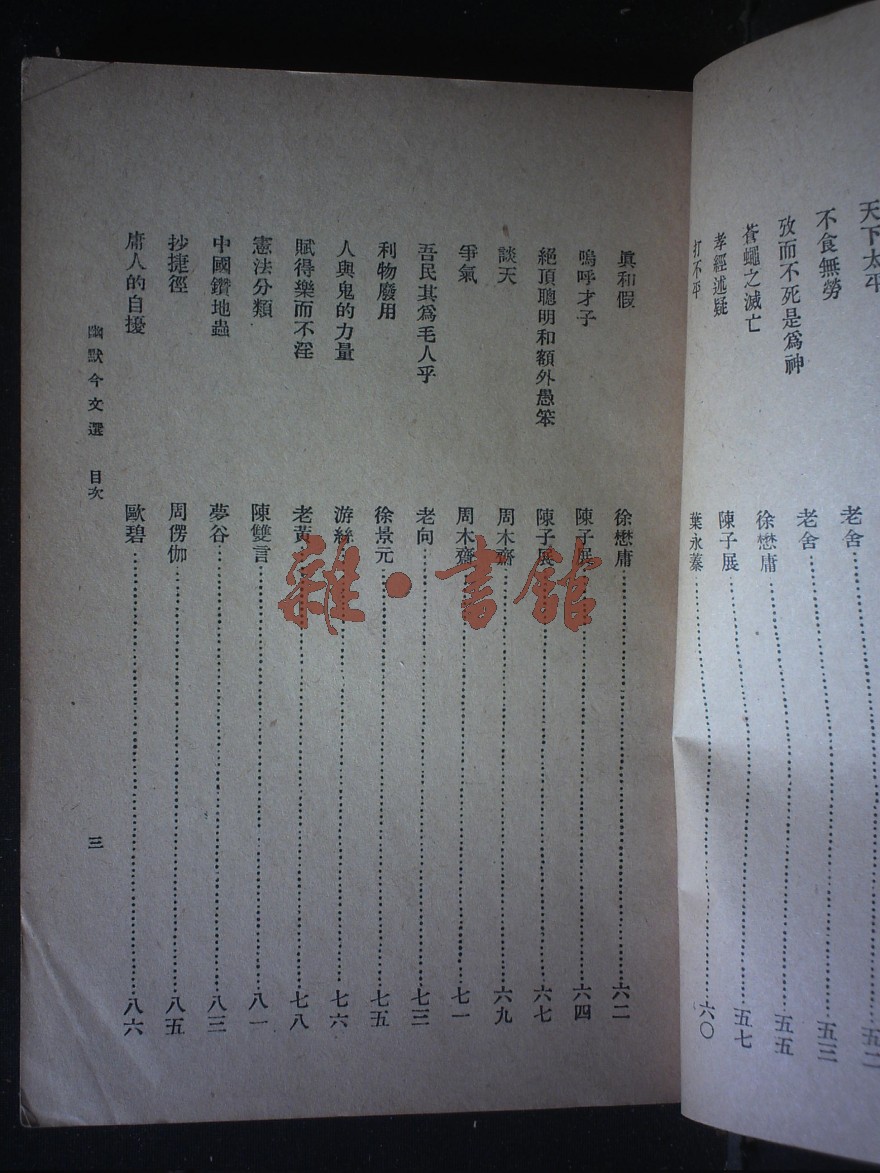 天下太平 老舍 五二
不食無勞 老舍 五三
攷而不死是爲神 徐懋庸 五五
蒼蠅之滅亡 陳子展 五七
孝經述疑
打不平 葉永蓁 六〇
眞和假 徐懋庸 六二
嗚呼才子 陳子展 六四
絕頂聰明和額外愚笨 陳子展 六七
談天 周木齋 六九
爭氣 周木齋 七一
吾民其爲毛人乎 老向 七三
利物廢用 徐景元 七五
人與鬼的力量 游絲 七六
賦得樂而不淫 老黃 七八
憲法分類 陳雙言 八一
中國鑽地蟲 夢谷 八三
抄捷徑 周楞伽 八五
庸人的自擾 歐碧 八六
幽默今文選 目次 三
雜·書館